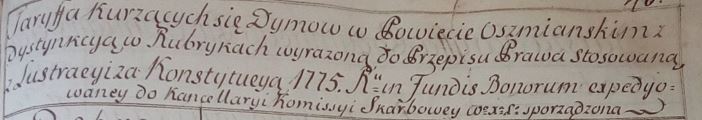 Taryffa Kurzących się Dymow w Powiecie Oszmianskim z
Dystynkcyą w Rubrykach wyrazoną do Przepisu Prawa stosowaną
z Lustracyi za Konstytucyą 1775. R: in Fundis Bonorum expedyo=
waney do Kancellaryi Komissyi Skarbowey w:x:l: sporządzona